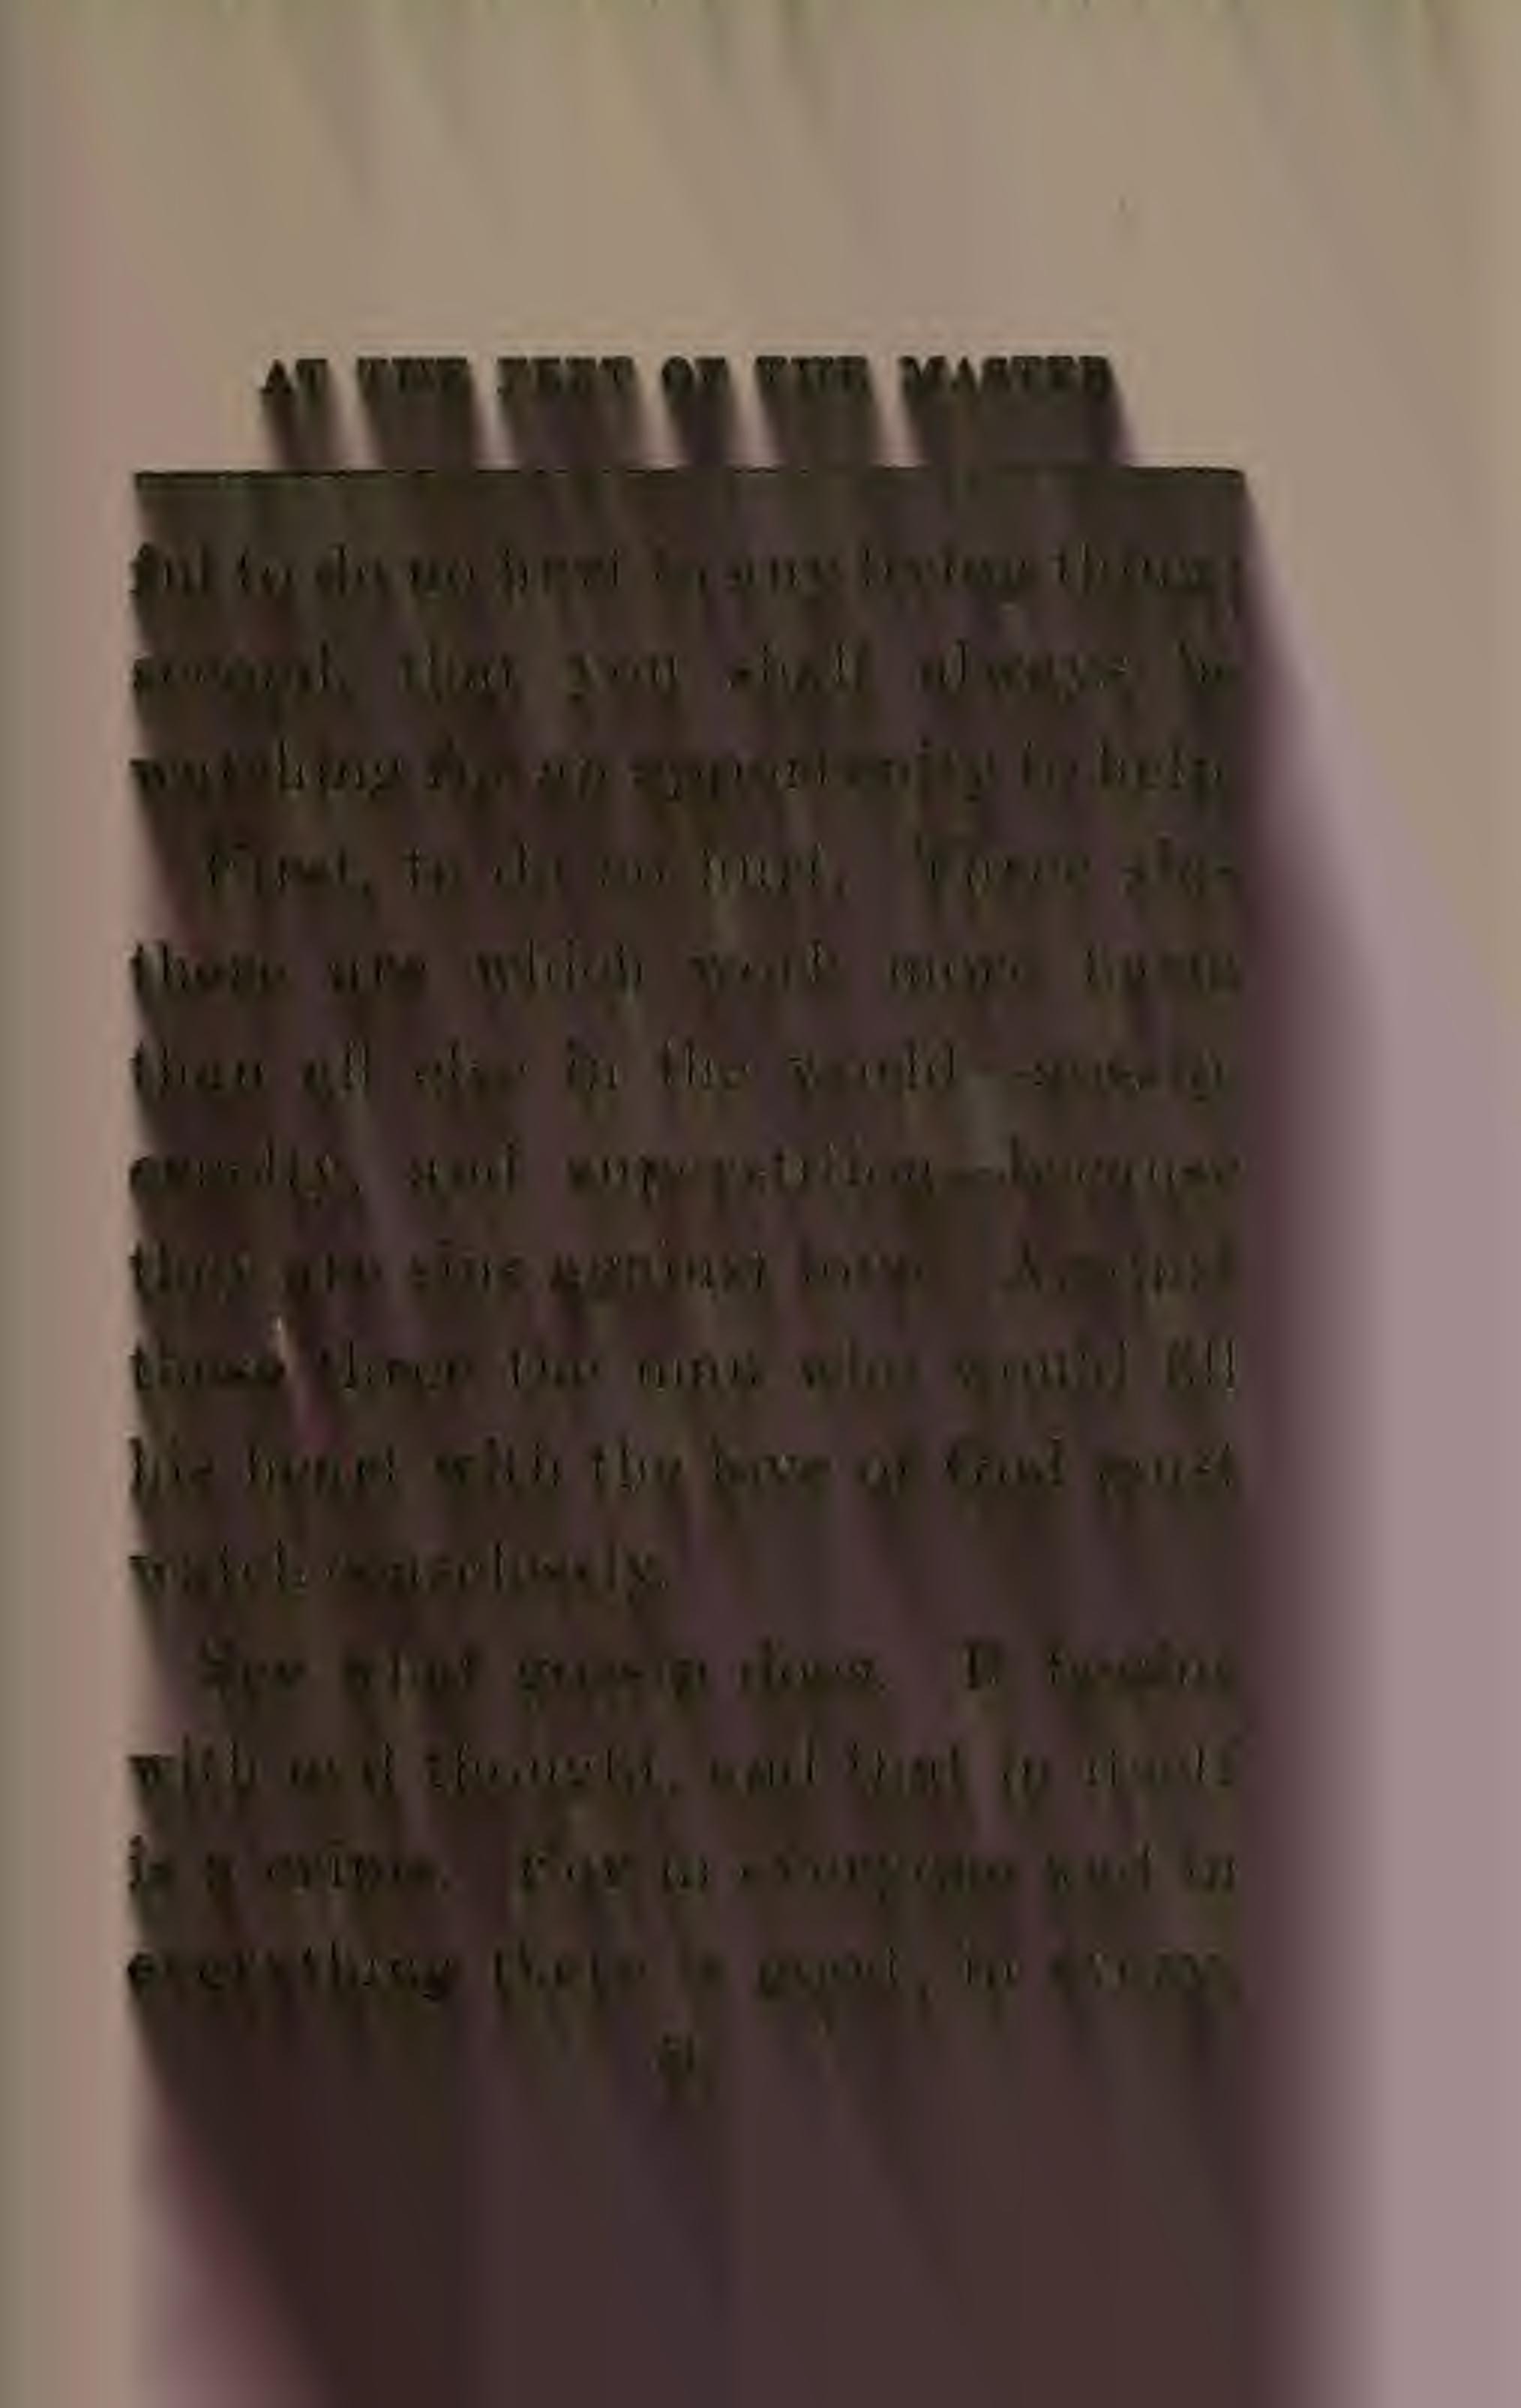 AT THE FEET OF THE MASTER
ful to do no hurt to any living thing;
second, that you shall always be
watching for an opportunity to help.
First, to do no hurt. Three sins
there are which work more harm
than all else in the world—gossip,
cruelty, and superstition—because
they are sins against love. Against
these three the man who would fill
his heart with the love of God must
watch ceaselessly.
See what gossip does. It begins
with evil thought, and that in itself
is a crime. For in everyone and in
everything there is good; in every